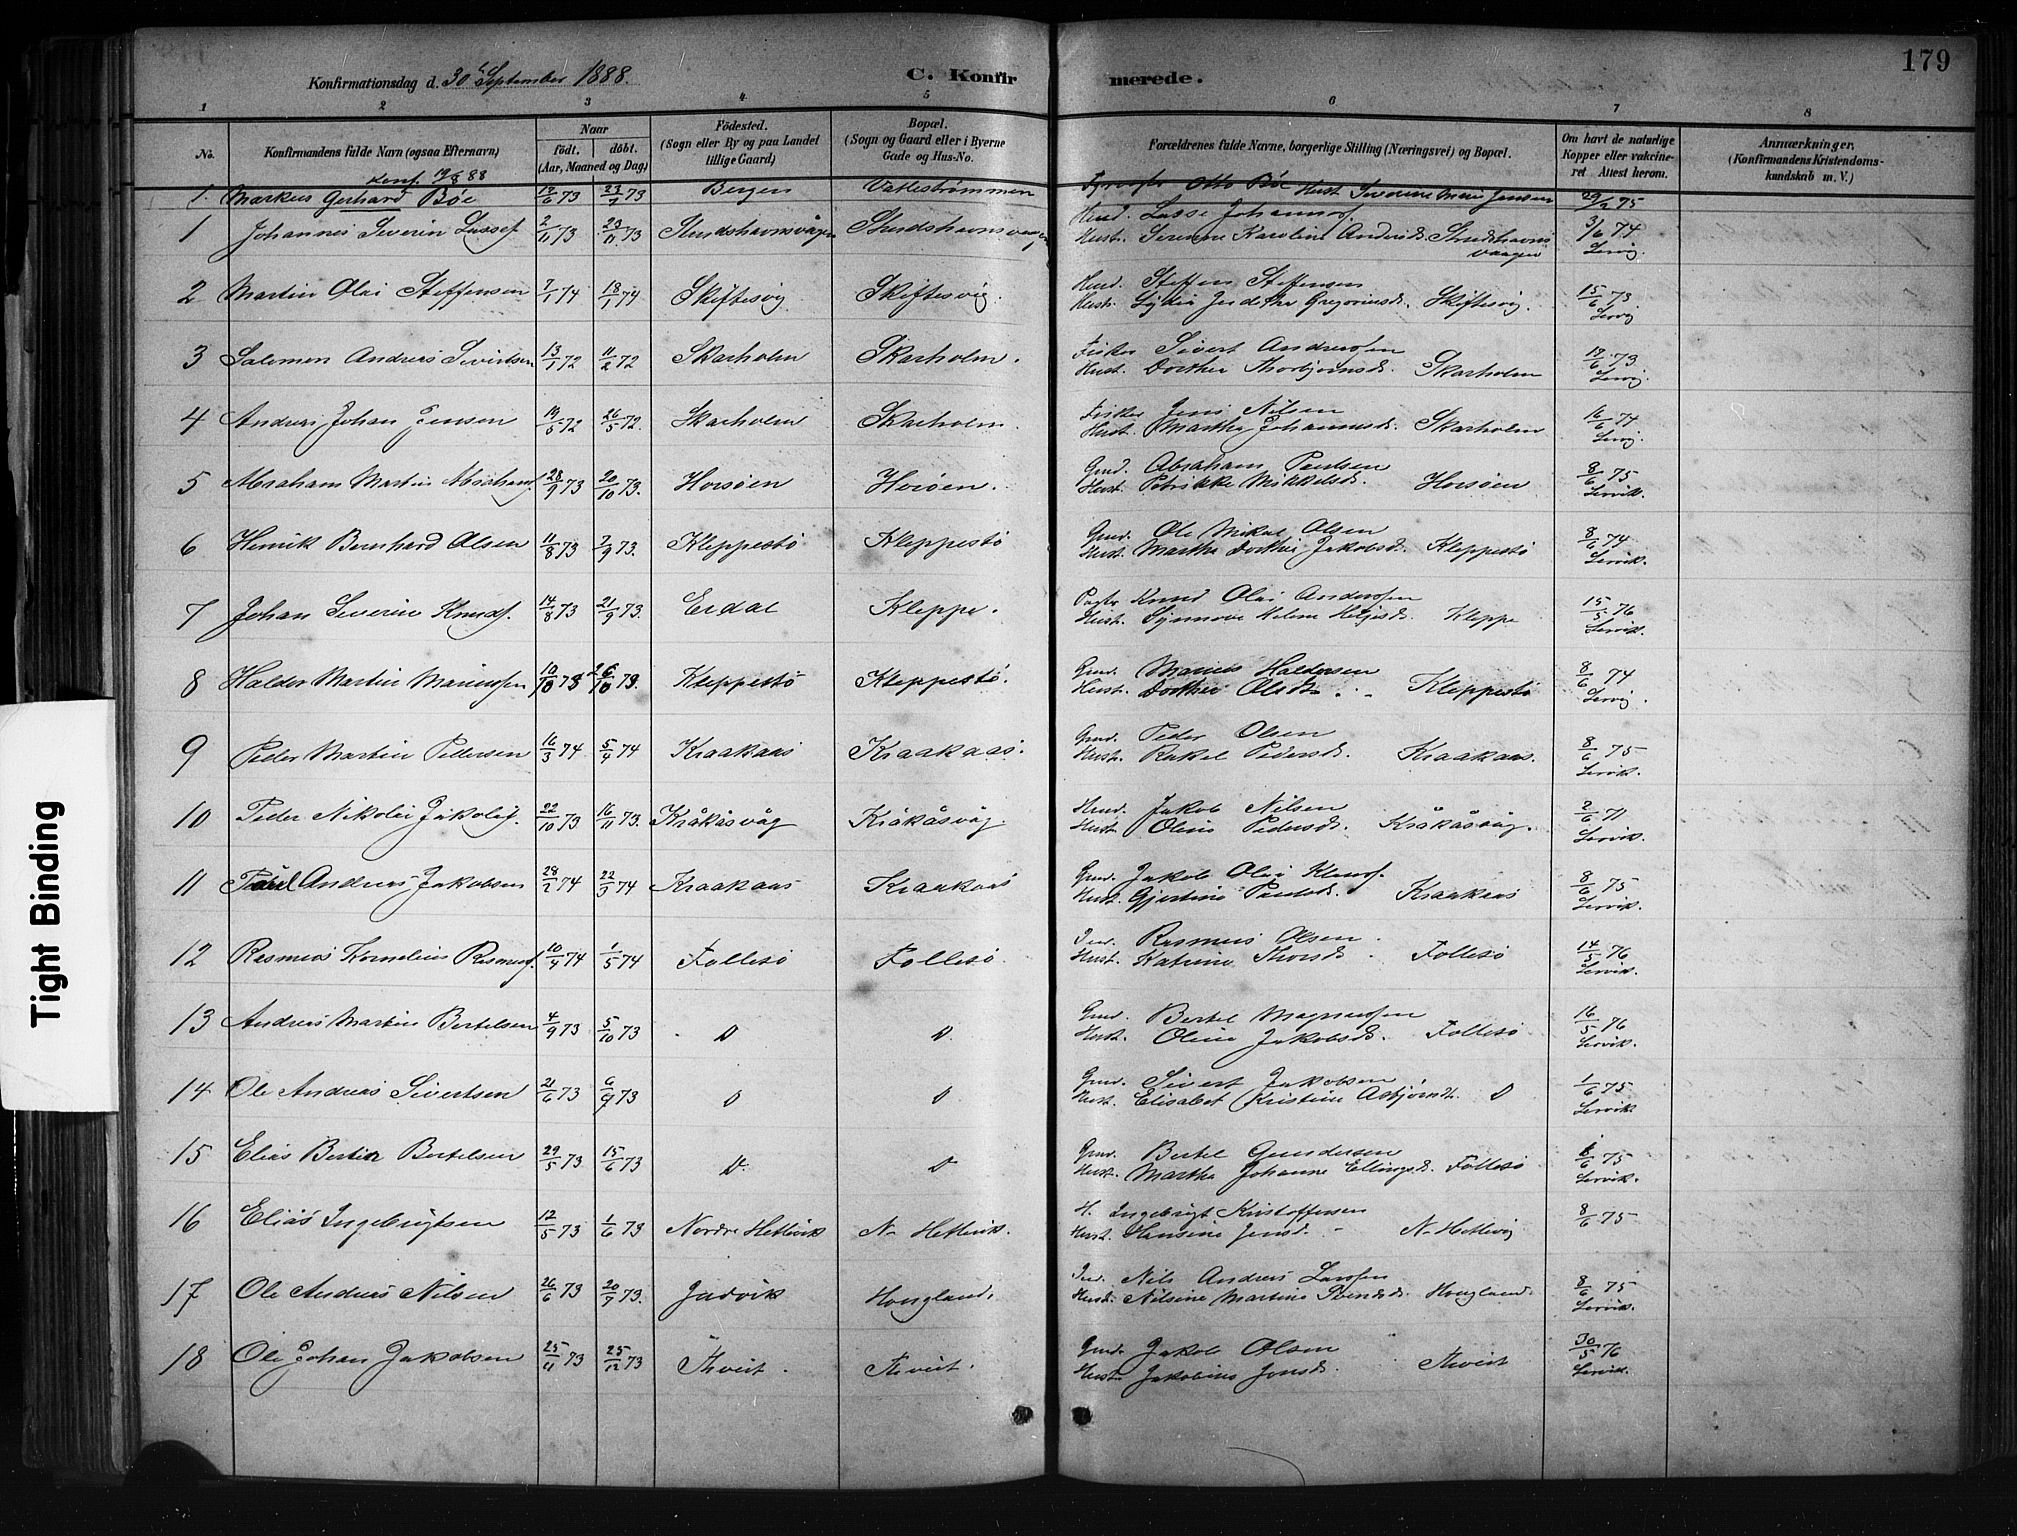 179
Konfirmationsdag d. 30 September 1888.
C. Konfirmerede.
1 2 3 4 5 6 7 8
No.
Konfirmandens fulde Navn (ogsaa Efternavn)
Naar
födt. döbt.
(Aar, Maaned og Dag)
Födested.
(Sogn eller By og paa Landet
tillige Gaard)
Bopæl.
(Sogn og Gaard eller i Byerne
Gade og Hus-No.
Forældrenes fulde Navne, borgerlige Stilling (Næringsvei) og Bopæl.
Om havt de naturlige
Kopper eller vakcine-
ret. Attest herom.
Anmærkninger.
(Konfirmandens Kristendoms-
kundskab m. V.)
1. Markus Gerhard Böe 12/6 73 Bergen Vatlestrømmen Otto Böe Hust. Severine Marie Jensen
1 Johannes Severin Lassef 2/11 73 23/11 73 Studshavnsvågen Studshavnsvaagen Husd. Lasse Johannesf. 3/6 74
Hust. Serine Karoline Andersd. Studshavnsvaagen Lervig.
2 Martin Olai Steffensen 7/1 74 18/1 74 Skiftesvig Skiftesvig. Husd. Steffen Steffensen 15/6 73
Hust. Lydia Gregoriusd. Skiftesvig. Lervig
3 Salomon Andreas Sivertsen 13/1 72 11/2 72 Skarholm Skarholm. Fisker Sivert Andreassen 73
Hust. Dorthea Thorbjörnsd. Skarholm Lervig.
4 Andreas Johan Jensen 19/5 72 26/5 72. Skarholm Skarholm. Fisker Jens Nilsen 16/6 74
Hust. Martha Johannesd. Skarholm Lervig.
5 Abraham Martin Abrahamsf. 28/9 73 20/10 73. Horsöen Horsöen. Grud. Abraham Paulsen 8/6 75
Hust. Petrikke Mikkelsd. Horsöen Lervik.
6 Henrik Bernhard Olsen 11/8 73 7/9 73. Kleppestö Kleppestö Grud. Ole Mikal Olsen 8/6 74
Hust. Martha Dorthea Jakobsd. Kleppestö Lervik.
7 Johan Severin Knudsf. 14/8 73 21/9 73. Erdal Kleppe. Knud Olai Anderssen 15/5 76
Hust. Synnove Helene Helgesd. Kleppe Lervik.
8 Haldor Martin Mariussen 10/10 73 26/10 73. Kleppestö Kleppestö. Grud. Marius Haldorsen 8/6 74
Hust. Dorthea Olsd. Kleppestö Lervig.
9 Peder Martin Pedersen 16/3 74 5/4 74 Kraakaas Kraakaas. Grud. Peder Olsen 8/6 75
Hust. Rakel Pedersd. Kraakaas. Lervik.
10 Peder Nikolai Jakobsf. 22/10 73 16/11 73. Kråkåsvåg Kråkåsvåg. Husd. Jakob Nilsen 2/6 71
Hust. Olina Pedersd. Kråkåsvåg. Lervik.
11 Paul Andreas Jakobsen 28/2 74 22/3 74 Kraakaas Kraakaas Grud. Jakob Olai Klausf. 8/6 75
Hust. Gjertine Paulsd. Kraakaas Lervik.
12 Rasmus Kornelius Rasmusf. 10/4 74 1/5 74 Follesö Follesö. Ind. Rasmus Olsen. 14/5 76
Hust. Katrine Thorsd. Follesö Lervik.
13 Andreas Martin Bertelsen 4/9 73 5/10 73 D D. Grud. Bertel Magnussen 16/5 76
Hust. Oline Jakobsd. Follesö Lervik.
14 Ole Andreas Sivertsen 21/6 73 6/7 73 D D Grud. Sivert Jakobsen 1/6 75
Hust. Elisabet Kristine Asbjörnsdt. D Lervik
15 Elias Bertin Bertelsen 29/5 73 15/6 73 D. D Grud. Bertel Gundersen 8/6 75
Hust. Martha Johanne Ellingsd. Follesö Lervik.
16 Elias Ingebrigtsen 12/5 73 1/6 73 Nordre Hetlevik N. Hetlevik. H. Ingebrigt Kristoffersen 8/6 75
Hust. Hansine Jensd. N. Hetlevig
17 Ole Andreas Nilsen 26/6 73 20/7 73. Juvik Hougland. Ind. Nils Andreas Larssen 8/6 75
Hust. Nilsine Martine Hougland. Lervik.
18 Ole Johan Jakobsen 25/11 73 25/12 73 Tveit. Tveit. Grud. Jakob Olsen 30/5 76
Hust. Jakobine Jonsd. Tveit Lervik.
Tight Binding